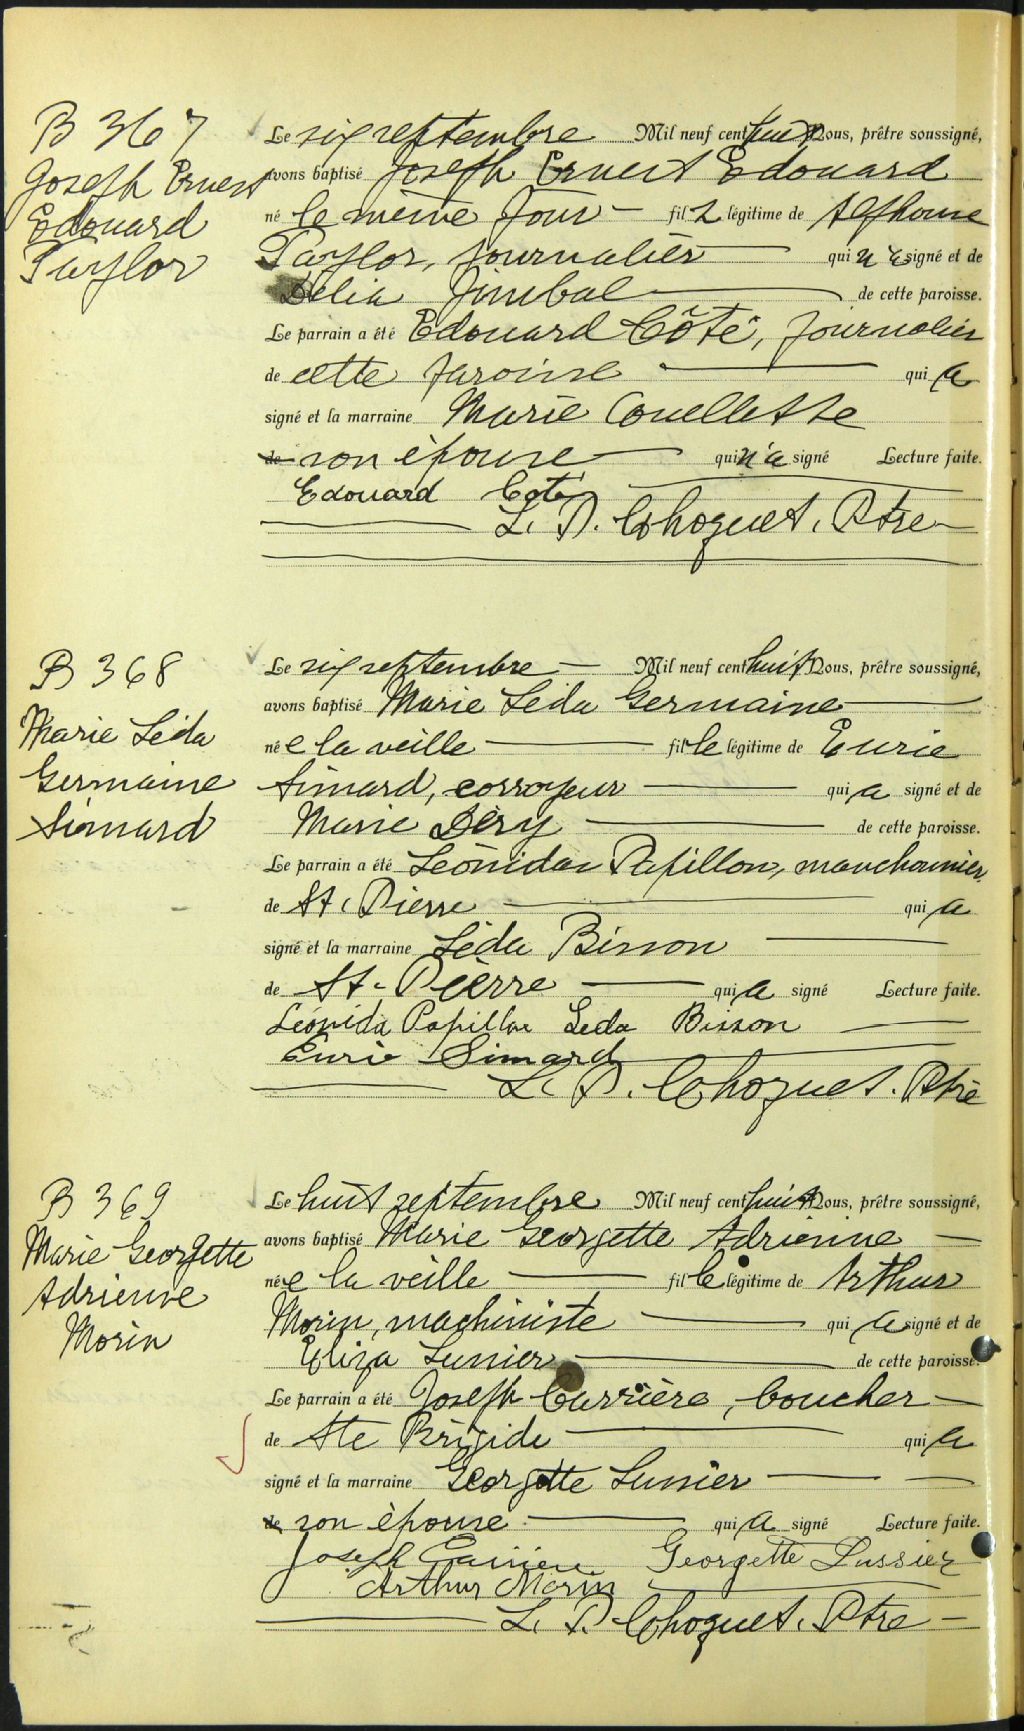 B 367
Joseph Ernest
Edouard
Taylor
Le six septembre Mil neuf cent huit Nous, prêtre soussigné,
avons baptisé Joseph Ernest Edouard
né le même jour fils légitime de Alphonse
Taylor, journalier qui n'a signé et de
Délia Jimbal de cette paroisse.
Le parrain a été Edouard Côté, journalier
de cette paroisse qui a
signé et la marraine Marie Couellette
de son épouse qui n'a signé Lecture faite.
Edouard Coté
L. P. Choquet. Ptre
B 368
Marie Léda
Germaine
Simard
Le six septembre Mil neuf cent huit Nous, prêtre soussigné,
avons baptisé Marie Léda Germaine
née la veille fille légitime de Eurie
Simard, corroyeur qui a signé et de
Marie Déry de cette paroisse.
Le parrain a été Léonidas Papillon, manchonnier
de St. Pierre qui a
signé et la marraine Léda Bisson
de St-Pierre qui a signé Lecture faite.
Léonida Papillon Leda Bisson
Eurie Simard
L. P. Choquet. Ptre
B 369
Marie Georgette
Adrienne
Morin
Le huit septembre Mil neuf cent huit Nous, prêtre soussigné,
avons baptisé Marie Georgette Adrienne
née la veille fille légitime de Arthur
Morin, machiniste qui a signé et de
Eliza Lussier de cette paroisse.
Le parrain a été Joseph Carrière, boucher
de Ste Brigide qui a
signé et la marraine Georgette Lussier
de son épouse qui a signé Lecture faite.
Joseph Carriere Georgette Lussier
Arthur Morin
L. P. Choquet. Ptre